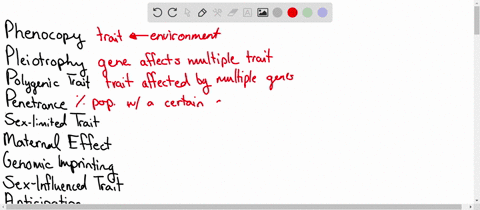 Phenocopy trait ← environment
Pleiotrophy gene affects multiple trait
Polygenic Trait trait affected by multiple genes
Penetrance % pop. w/ a certain
Sex-limited Trait
Maternal Effect
Genomic Imprinting
Sex-Influenced Trait
Anticipation